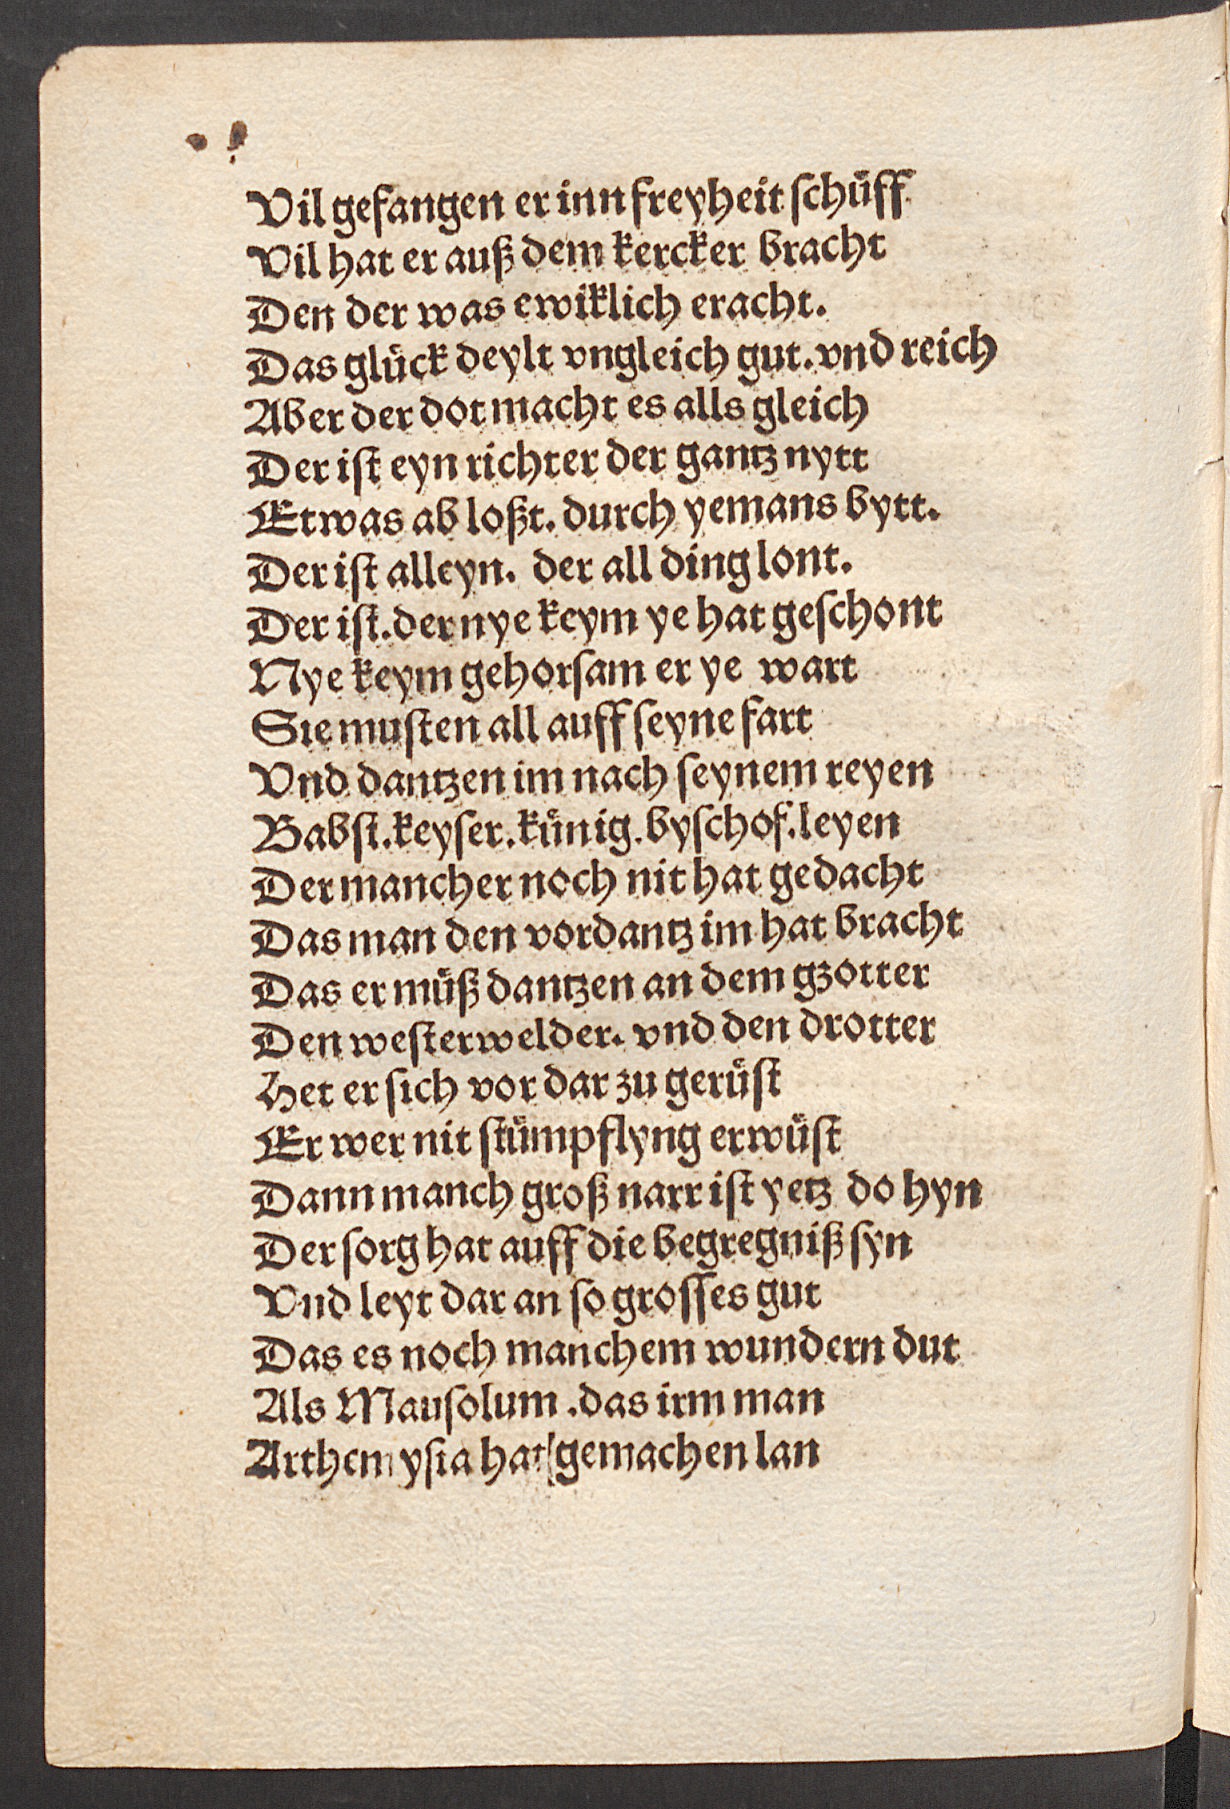 Vil gefangen er inn freyheit schüff
Vil hat er auß dem kercker bracht
Den der was ewiklich eracht.
Das glück deylt vngleich gut. vnd reich
Aber der dot macht es alls gleich
Der ist eyn richter der gantz nytt
Etwas ab loßt. durch yemans bytt.
Der ist alleyn. der all ding lont.
Der ist. der nye keym ye hat geschont
Nye keym gehorsam er ye wart
Sie musten all auff seyne fart
Vnd dantzen im nach seynem reyen
Babst. keyser. künig. byschof. leyen
Der mancher noch nit hat gedacht
Das man den vordantz im hat bracht
Das er müß dantzen an dem gzotter
Den westerwelder. vnd den drotter
Het er sich vor dar zu gerüst
Er wer nit stümpflyng erwüst
Dann manch groß narr ist yetz do hyn
Der sorg hat auff die begregniß syn
Vnd leyt dar an so grosses gut
Das es noch manchem wundern dut
Als Mausolum .das irm man
Arthemysia hat gemachen lan